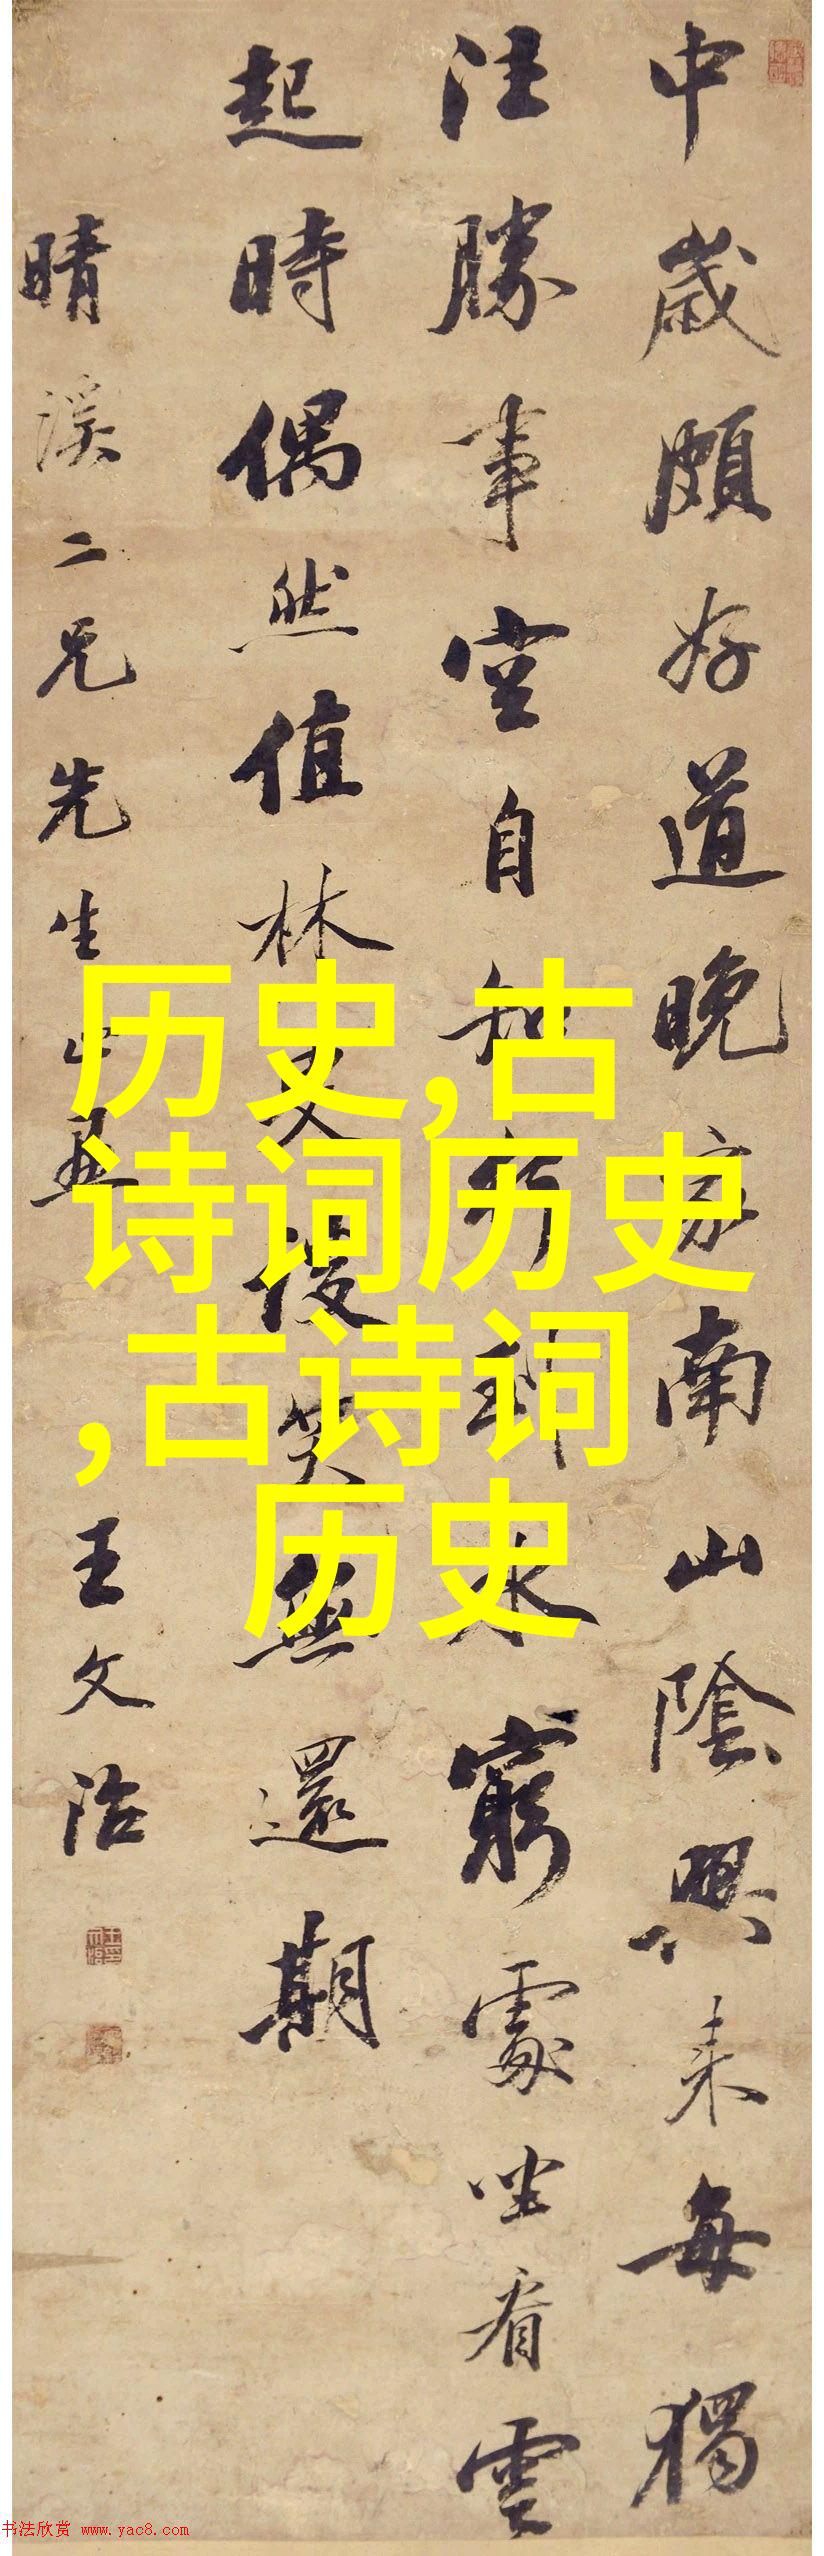 中歲頗好道晚家南山陰興来每獨
往勝事空自知行到水窮處坐看雲
起時偶然值林叟笑無還期
晴溪二兄先生
王文治
历史,古
诗词历史
,古诗词
历史
书法欣赏 www.yac8.com